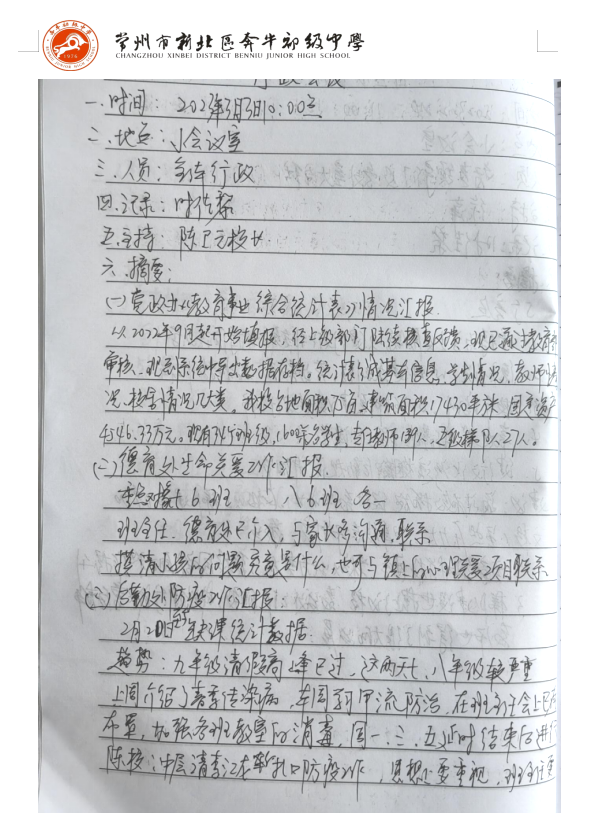 常州市新北区奔牛初级中学
CHANGZHOU XINBEI DISTRICT BENNIU JUNIOR HIGH SCHOOL
行政会议
一.时间:2023年3月3日10:00
二.地点:小会议室
三.人员:全体行政
四.记录:
五.主持:陈卫元校长
六.摘要:
(一)党政办公教育事业综合统计表的情况汇报
从2022年9月起开始填报,经上级部门陆续核查反馈,现已
审核.现系统中导出数据存档.统计表基本信息,学生情况,教师情
况,校舍情况几大类.我校占地面积75亩,建筑面积17430平米 固定资产
4546.33万元.现有34个班级,1600余名学生,专任教师人,27人.
(二)德育处生命关爱工作汇报
六6班 八6班 各一
班主任.德育处已介入,与家长多沟通,联系
摸清小孩的问题究竟是什么,也可与镇上的心理关爱项目联系
(三)后勤处防疫工作汇报
2月20日缺课统计数据.
趋势:九年级请假高峰已过,这两天七、八年级较严重
上周介绍了春季传染病,本周到甲流防治,在班主任会上已
布置,加强各班教室的消毒,周一.三.五延时结束后进行
陈校:中层请李江龙防疫工作,思想上要重视,班主任要